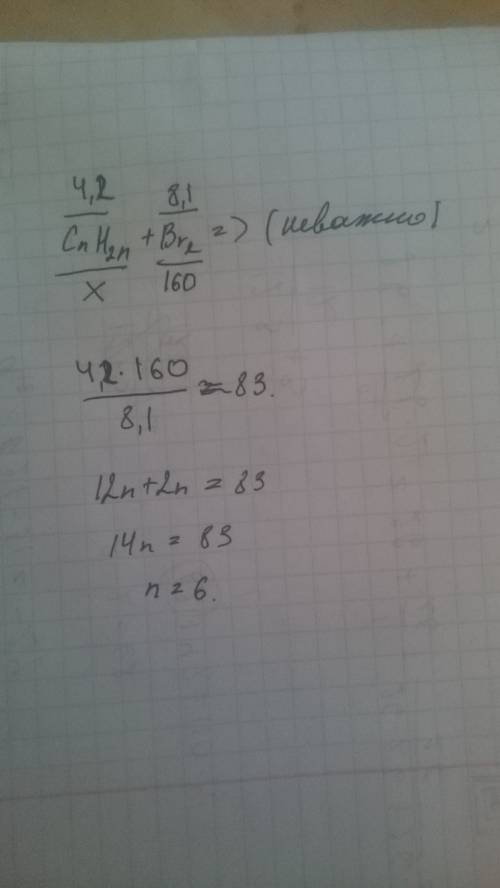 4,2 8,1
CnH2n + Br2 => (неважно)
x 160
4,2·160
8,1
≈83.
12n+2n = 83
14n = 83
n = 6.